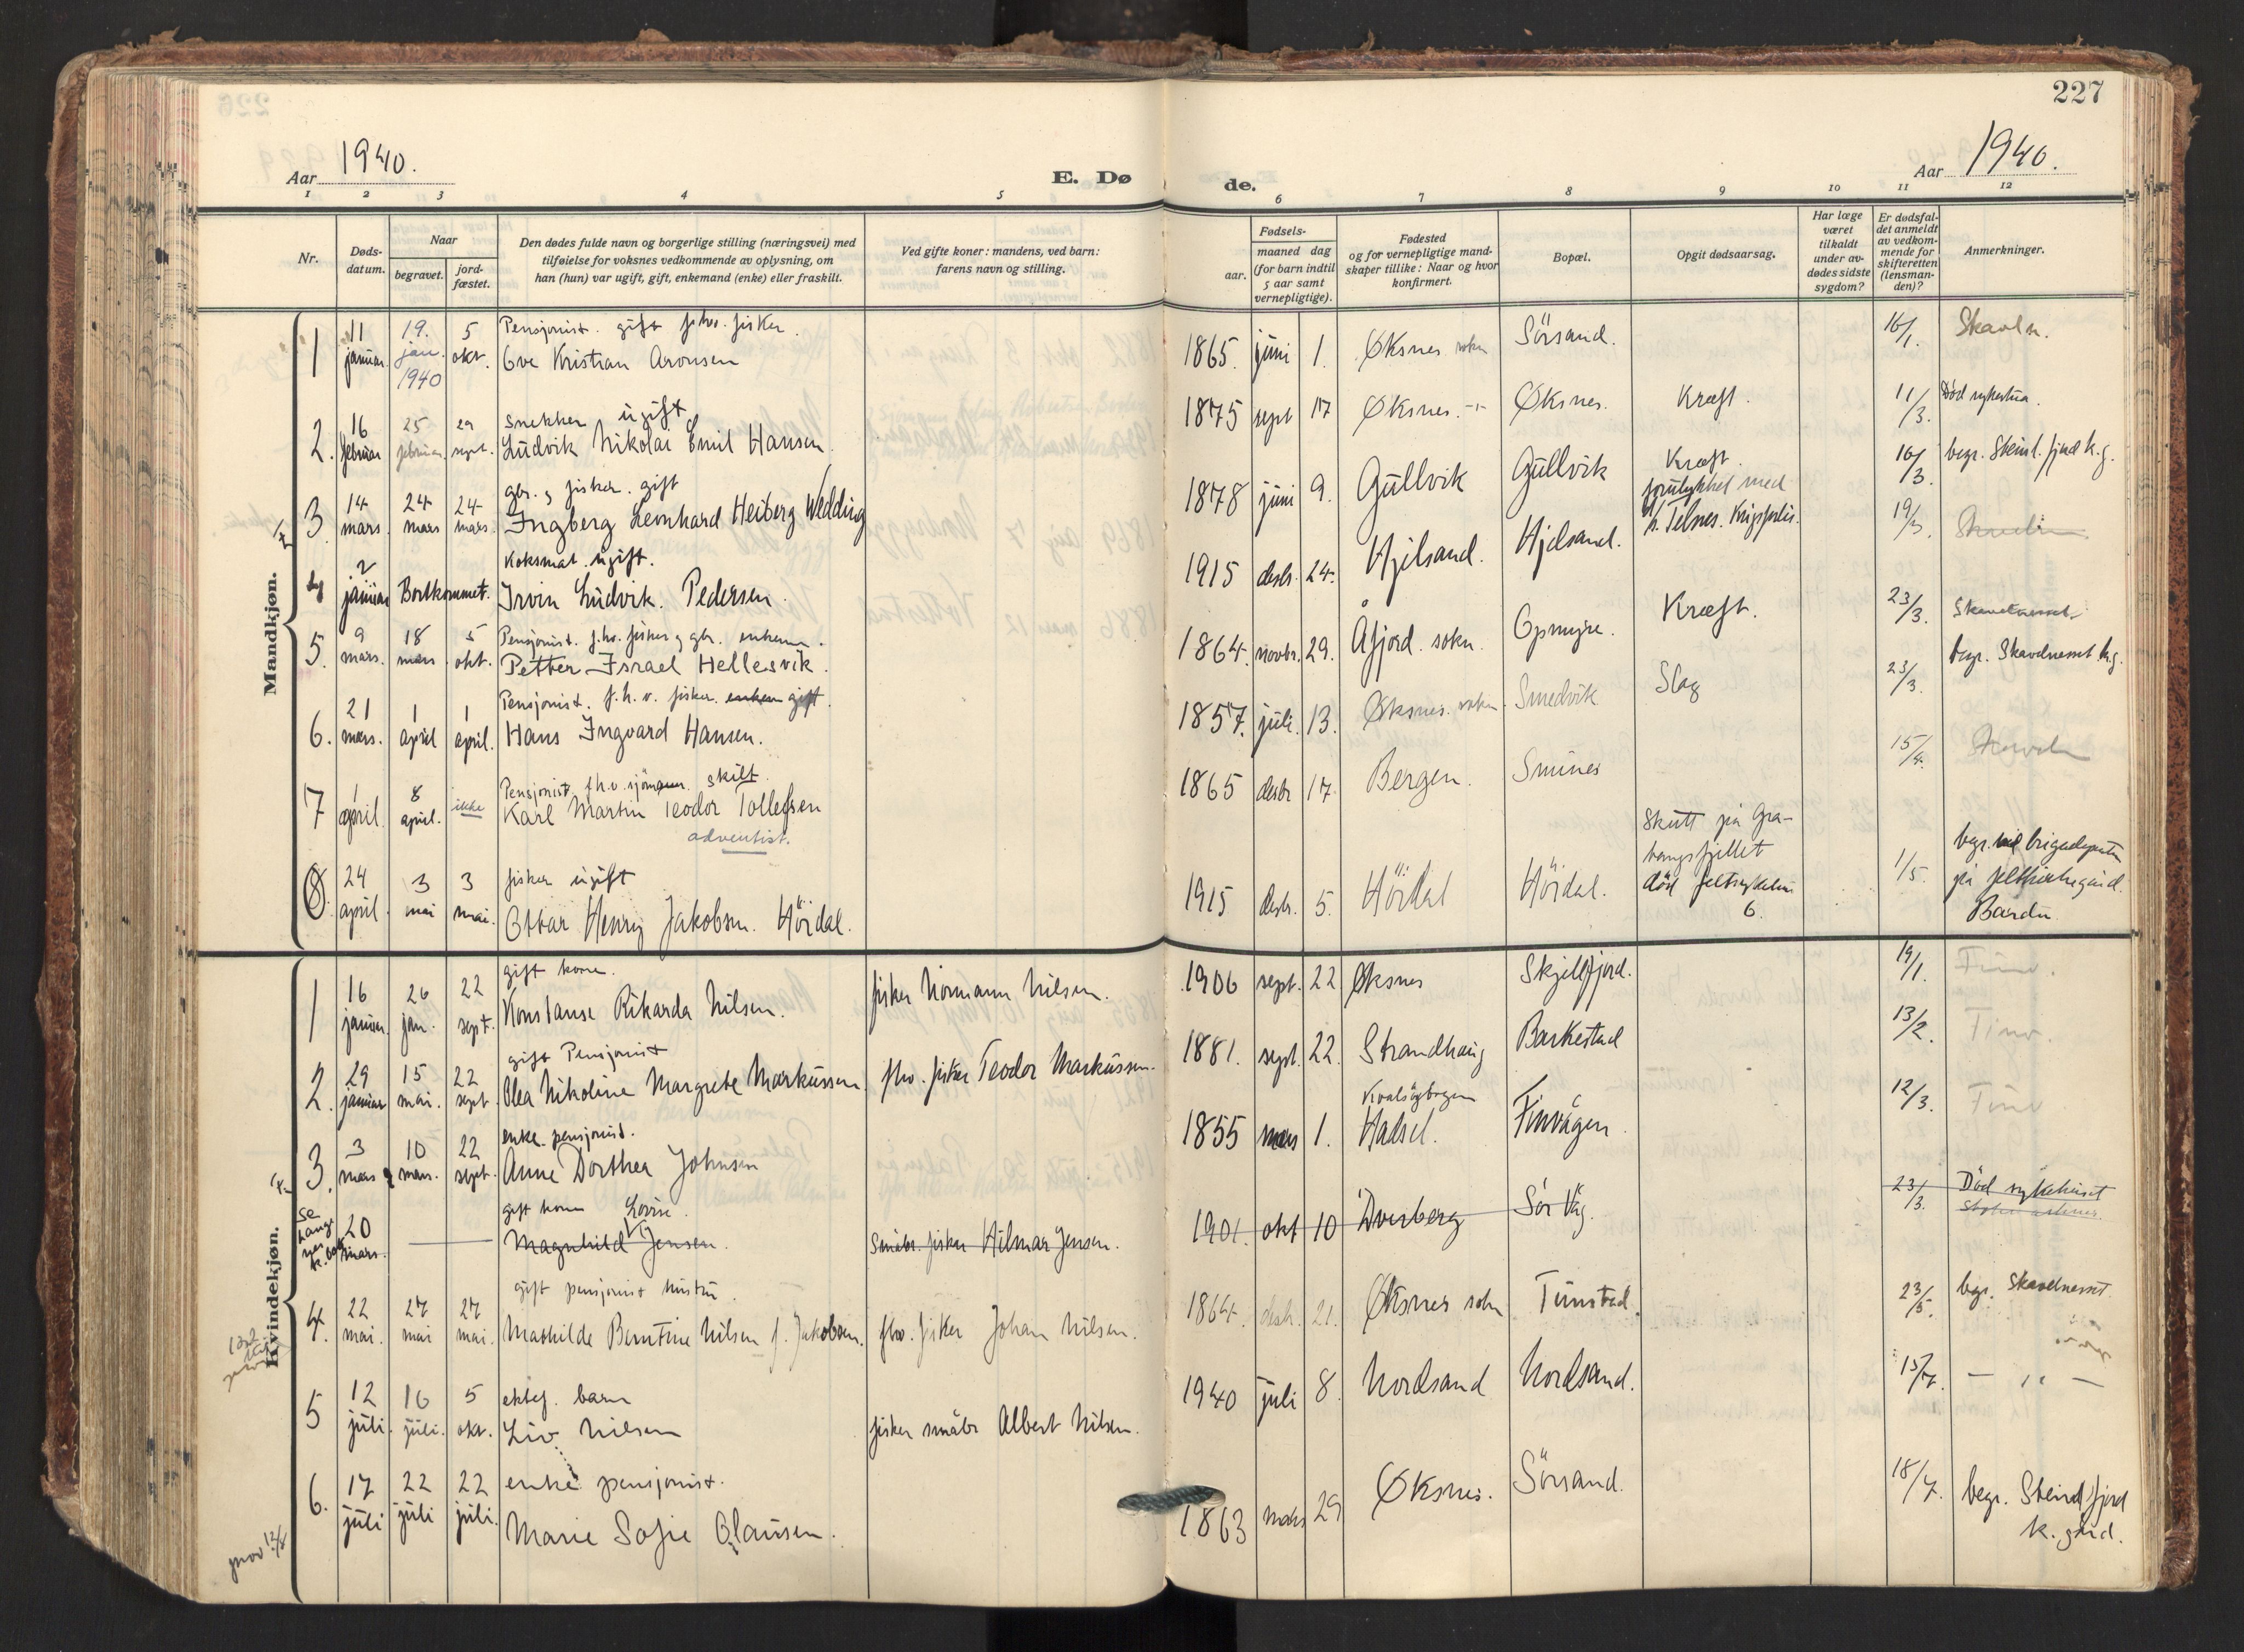 227
Aar 1940.
E. Døde.
Aar 1940.
1 2 3 4 5 6 7 8 9 10 11 12
Nr.
Døds-datum.
Naar
begravet.
jord-fæstet.
Den dødes fulde navn og borgerlige stilling (næringsvei) med
tilføielse for voksnes vedkommende av oplysning, om
han (hun) var ugift, gift, enkemand (enke) eller fraskilt.
Ved gifte koner: mandens, ved barn:
farens navn og stilling.
Fødsels-
aar.
maaned dag
(for barn indtil
5 aar samt
vernepligtige).
Fødested
og for vernepligtige mand-
skaper tillike: Naar og hvor
konfirmert.
Bopæl.
Opgit dødsaarsag.
Har læge
været
tilkaldt
under av-
dødes sidste
sygdom?
Er dødsfal-
det anmeldt
av vedkom-
mende for
skifteretten
(lensman-
den)?
Anmerkninger.
Mandkjøn.
1 11 januar 19. jan. 1940 5 okt. Pensjonist. gift fhv. fisker.
Ove Kristian Aronsen 1865. juni 1. Øksnes sokn Sörsand. 16/1.
2. 16 februar 25 februar 29 sept. Snekker ugift
Ludvik Nikolai Emil Hansen. 1875 sept 17 Øksnes. -"- Øksnes. Kræft. 11/3. Död sykestua.
3. 14 mars. 24 mars 24 mars. gbr. og fisker. gift
Ingberg Leonhard Heiberg Wedding 1878 juni 9. Gullvik Gullvik Kræft. 16/3. begr. Steinl.fjord k.g.
4 2 januar Bortkommet. Koksmat. ugift.
Irvin Ludvik. Pedersen. 1915 desbr. 24. Hjelsand. Hjelsand. forulykket med 19/3.
5. 9 mars. 18 mars 5 okt. Pensjonist. f.hv. fisker og gbr. enkem.
Petter Israel Hellesvik. 1864. novbr. 29. Åfjord. sokn Opmyre. Kræft. 23/3.
6. 21 mars. 1 april 1 april. Pensjonist. f.h.v. fisker. enkem gift.
Hans Ingvard Hansen. 1857. juli. 13. Øksnes. sokn. Smedvik Slag 23/3. begr. Skavdnesset k.g.
7 1 april. 8 april. ikke Pensjonist. fh.v. sjömann. skilt.
Karl Martin Teodor Tollefsen
adventist. 1865 desbr 17 Bergen. Smines 15/4.
8. 24 april. 3 mai 3 mai. fisker ugift
Ottar Henry Jakobsen. Hördal. 1915 desbr. 5. Hördal Hördal. Skutt på Gra-
tangsfjellet
död feltsykehus
6. 1/5. begr. ved brigadepresten
på feltkirkegård.
Bardu
Kvindekjøn.
1 16 januar. 26 jan. 22 sept. gift kone.
Konstanse Rikarda Nilsen. fisker Normann Nilsen. 1906 sept. 22 Øksnes Skjellfjord. 19/1.
2. 29 januar 15 mai. 22 sept. gift Pensjonist
Olea Nikoline Margrete Markussen fhv. fisker Teodor Markussen. 1881. sept. 22. Strandhaug Barkestad 13/2.
3. 3 mars 10 mars. 22 sept. enke. pensjonist.
Anne Dorthea Johnsen 1855 mars 1. Hadsel. Finvågen. 12/3.
20 mars. gift kone Lovise
Magnhild Jensen. Småbr. fisker Hilmar Jensen. 1901. okt 10 Dverberg Sör Våg. 23/3. Död sykehuset
4. 22 mai. 27 mai 27 mai. gift pensjonist hustru.
Mathilde Berntine Nilsen f. Jakobsen. fhv. fisker Johan Nilsen. 1864. desb. 21. Øksnes sokn Tunstad. 23/5. begr. Skavdnesset
5 12 juli. 16 juli. 5 okt. ektef. barn
Liv. Nilsen fisker småbr Albert Nilsen. 1940 juli 8. Nordsand Nordsand. 15/7. — " —
6. 17 juli 22 juli 22 juli. enke pensjonist.
Marie Sofie Olausen. 1863 mars 29 Øksnes. Sörsand. 18/7. begr. Steinlfjord
k. gård.